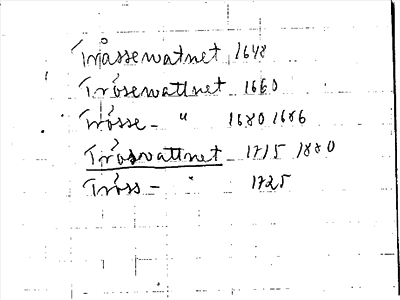 Tråssewatnet 1648
Trósewattnet 1660
Trósse - " 1680 1686
Tróswattnet 1715 1880
Tróss - " 1725